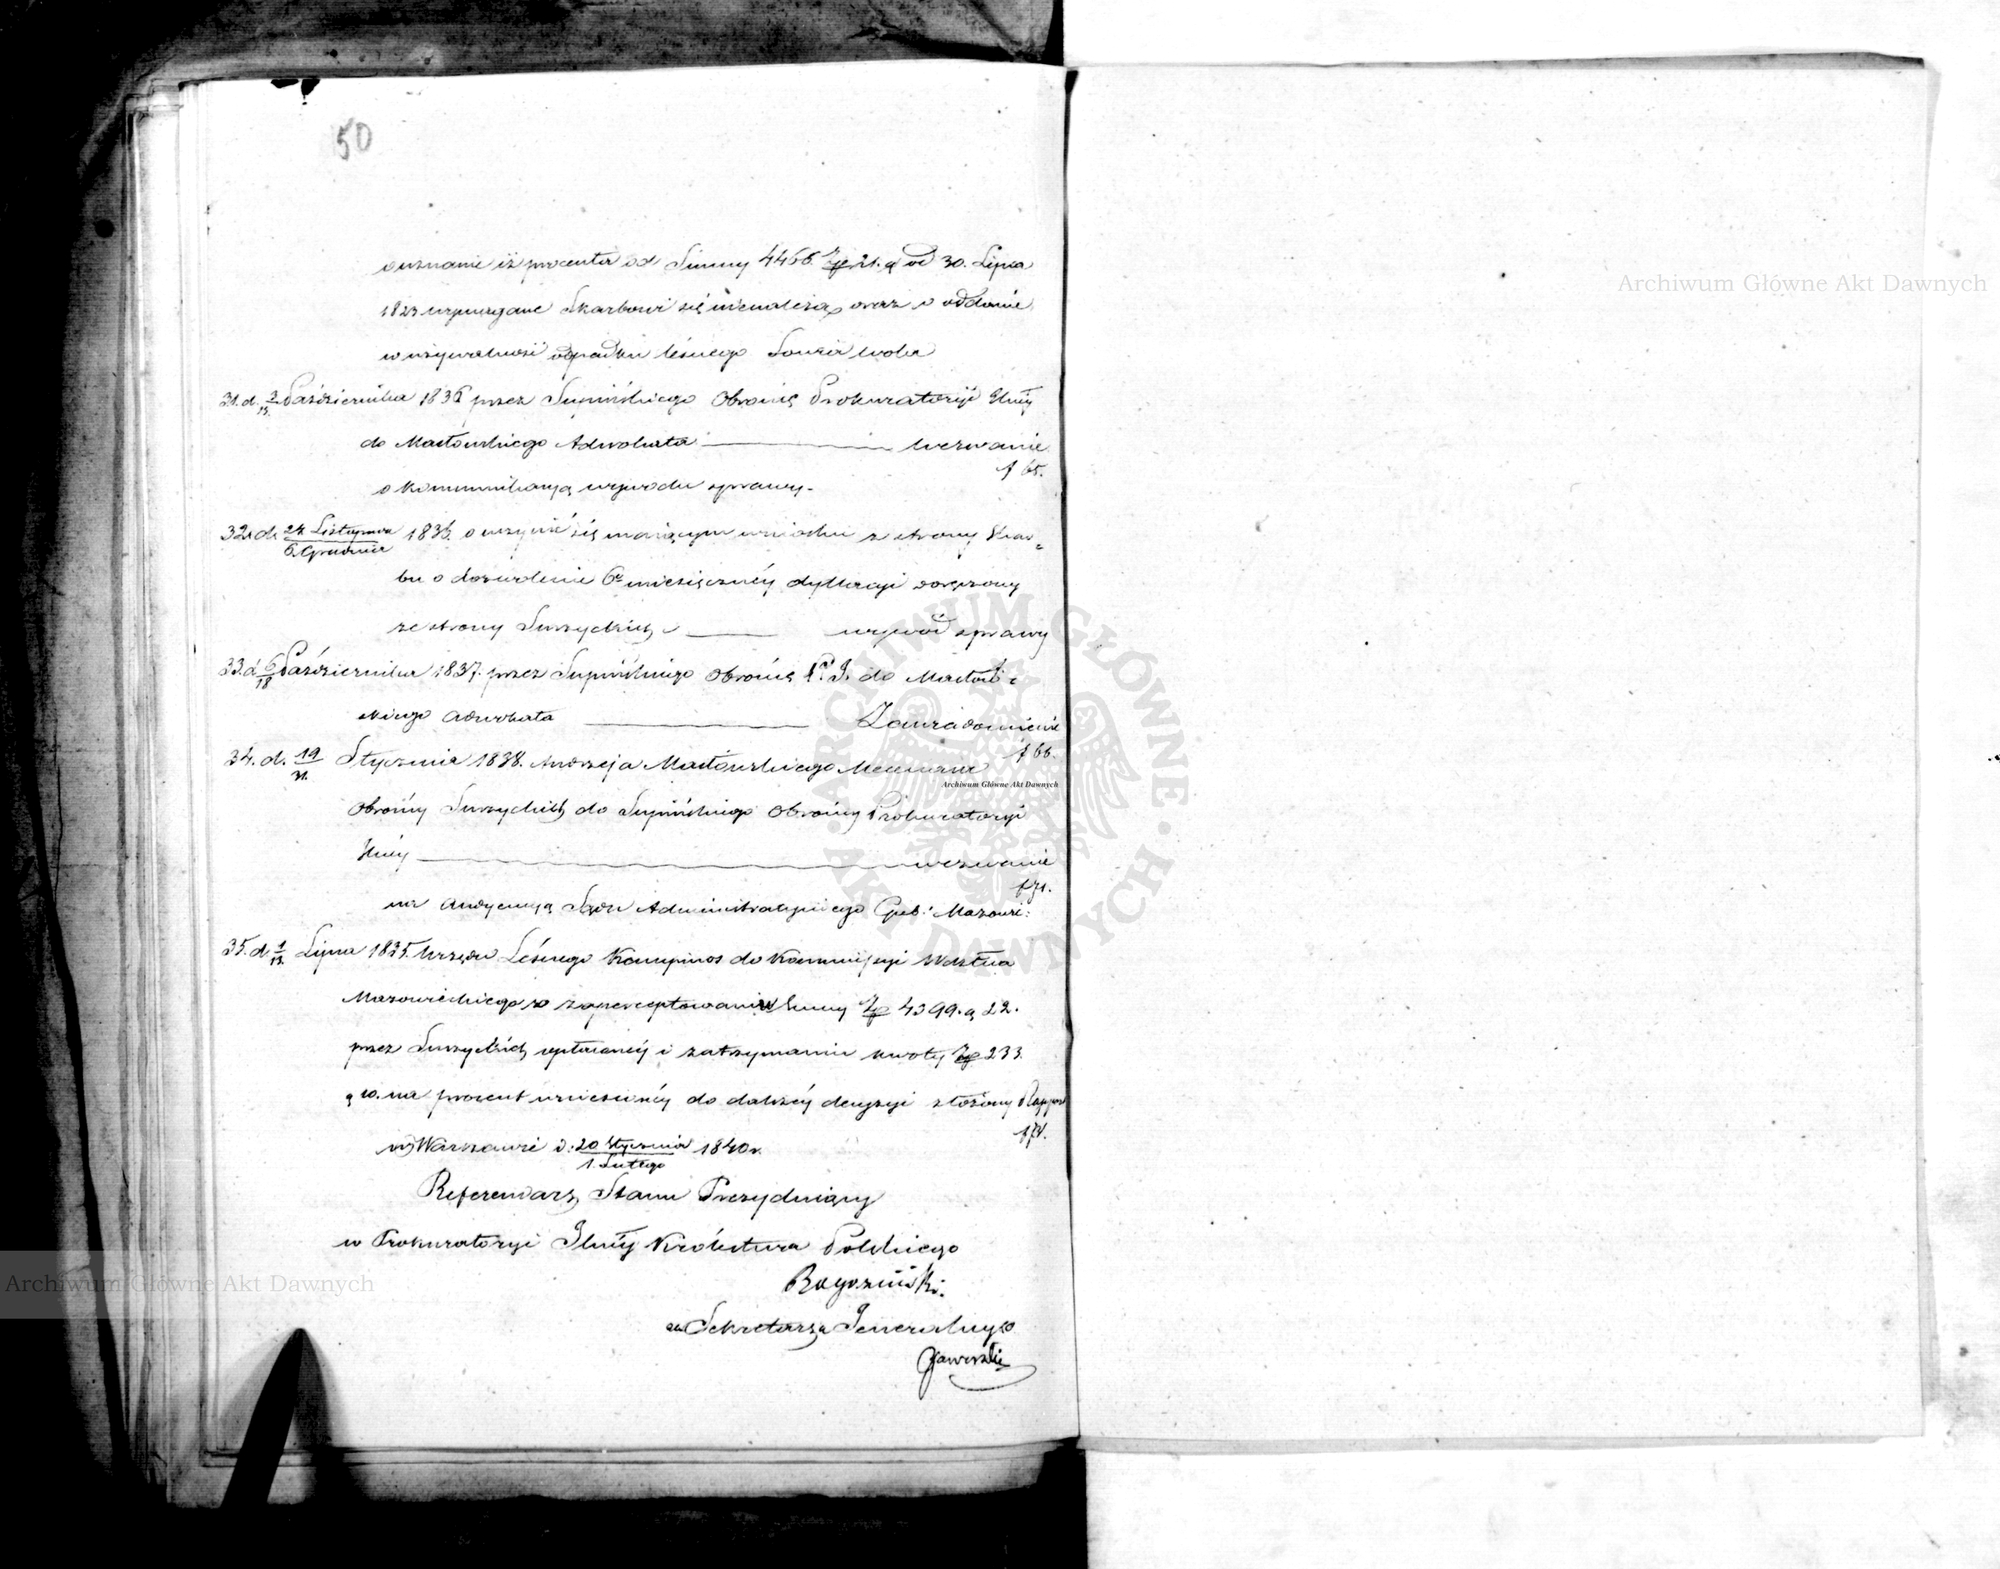 50
o uznanie iż procenta od Summy 4466. Zp 21. g od 30. Lipca
1823 wymagane Skarbowi się nienależą, oraz o oddanie
w używalność odpadku leśnego Sowia wola
31. d. 3/15. Października 1836 przez Supińskiego Obrońcę Prokuratoryi Jlnéy
do Masłowskiego Adwokata wezwanie
f 65.
o kommunikacyą wywodu sprawy.
32. d. 24 Listopada/6. Grudnia 1836. o uczynić się maiącym wniosku z strony Skar=
bu o dozwolenie 6o miesięcznéy dyllacyi doręczony
ze strony Surzyckich wywód sprawy
33. d. 6/18 Października 1837. przez Supińskiego Obrońcę P. J. do Masłow=
skiego Adwokata Zawiadomienie
f 66.
34. d. 19/31. Stycznia 1838. Andrzeja Masłowskiego Mecenasa
Obrońcy Surzyckich do Supińskiego Obrońcy Prokuratoryi
Jlnéy wezwanie
f 71.
na Audyencyą Sądu Administracyinego Gub: Mazowi:
35. d 1/13. Lipca 1835. Urzędu Leśnego Kampinos do Kommissyi Wdztwa
Mazowieckiego o zaperceptowaniu Summy Zp 4399. g 22.
przez Surzyckich wpłaconéy i zatrzymaniu kwoty Zp 233.
g 10. na procent wniesionéy do dalszéy decyzyi złożony Rapport
w Warszawie d: 20 Stycznia/1. Lutego 1840 r.
Referendarz Stanu Prezyduiący
w Prokuratoryi Jlnéy Królestwa Polskiego
Rogoziński.
za Sekretarza Jeneralnego
Jaworski
Archiwum Główne Akt Dawnych
Archiwum Główne Akt Dawnych
Archiwum Główne Akt Dawnych
ARCHIWUM GŁÓWNE AKT DAWNYCH